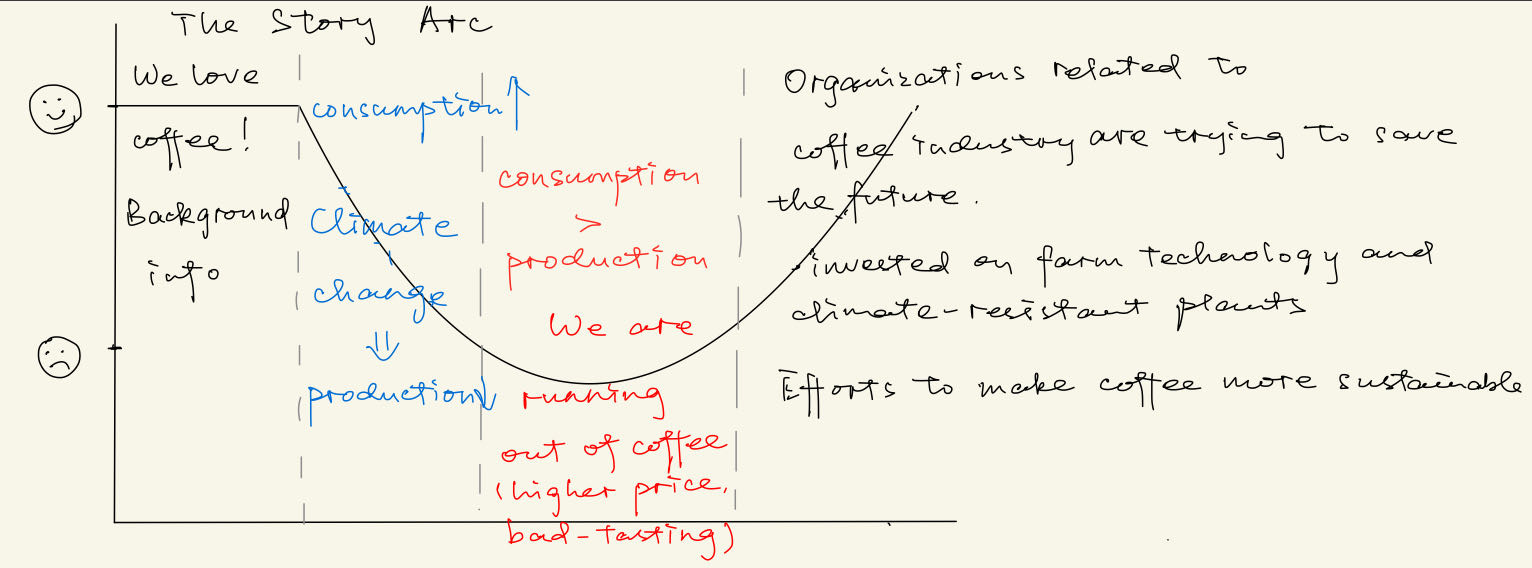 The Story Arc
We love
coffee!
Background
info
consumption↑
Climate
change
⇓
production↓
consumption
>
production
We are
running
out of coffee
(higher price,
bad-tasting)
Organizations related to
coffee industry are trying to save
the future.
invested on farm technology and
climate-resistant plants
Efforts to make coffee more sustainable